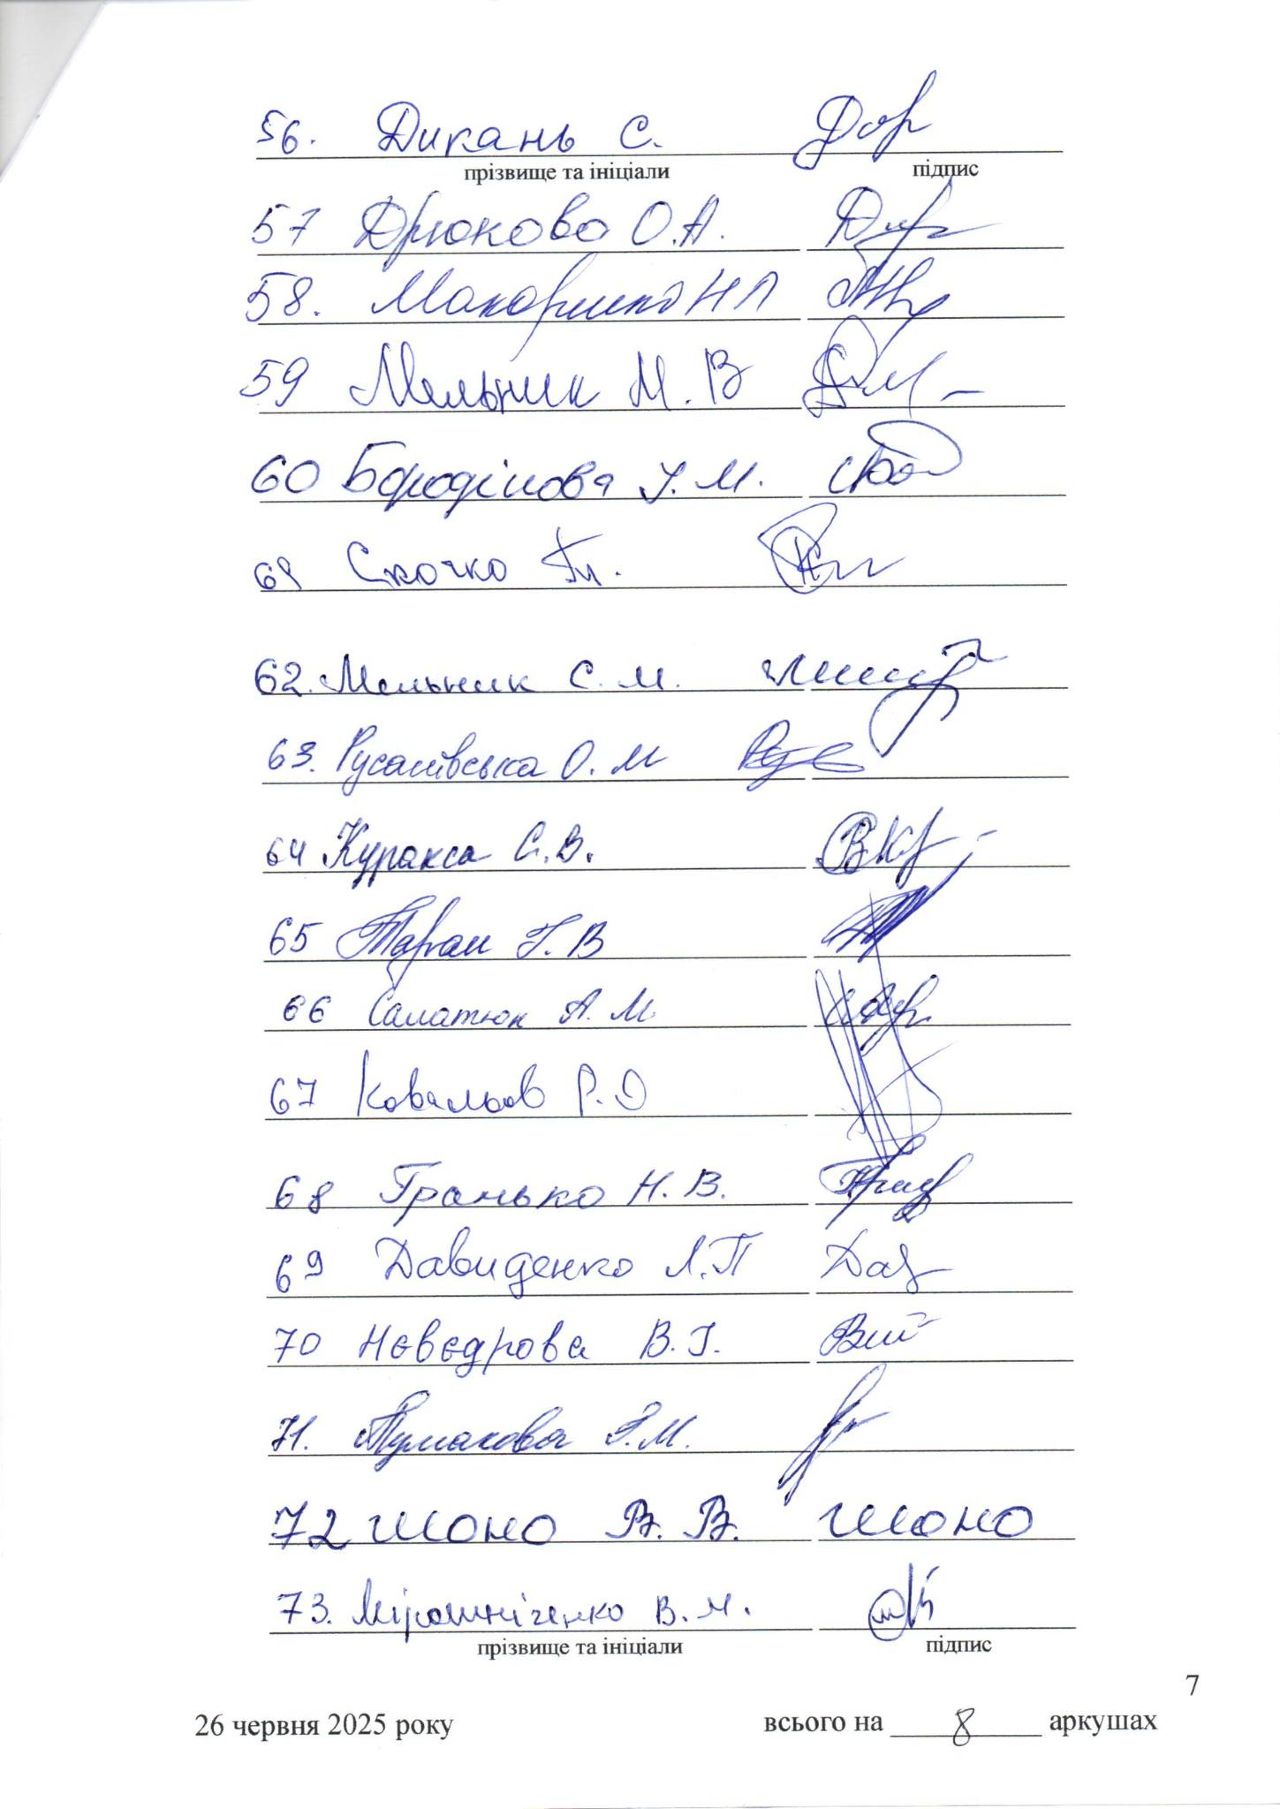 56. Дикань С.
прізвище та ініціали підпис
57 Дрюкова О.А.
58. Макаренко Н П
59 Мельник М. В
60 Бородінова І. М.
61 Скочко
62. Мельник С. М.
63. Русанівська О. М
64 Куракса С. В.
65 Таран Г. В
66 Салатюк А. М.
67 Ковальов Р. О
68 Гранько Н. В.
69 Давиденко Л. П
70 Нєвєдрова В. І.
71. Тумакова Г. М.
72 Шоно В. В. Шоно
73. Мірошніченко В. М.
прізвище та ініціали підпис
7
26 червня 2025 року всього на 8 аркушах